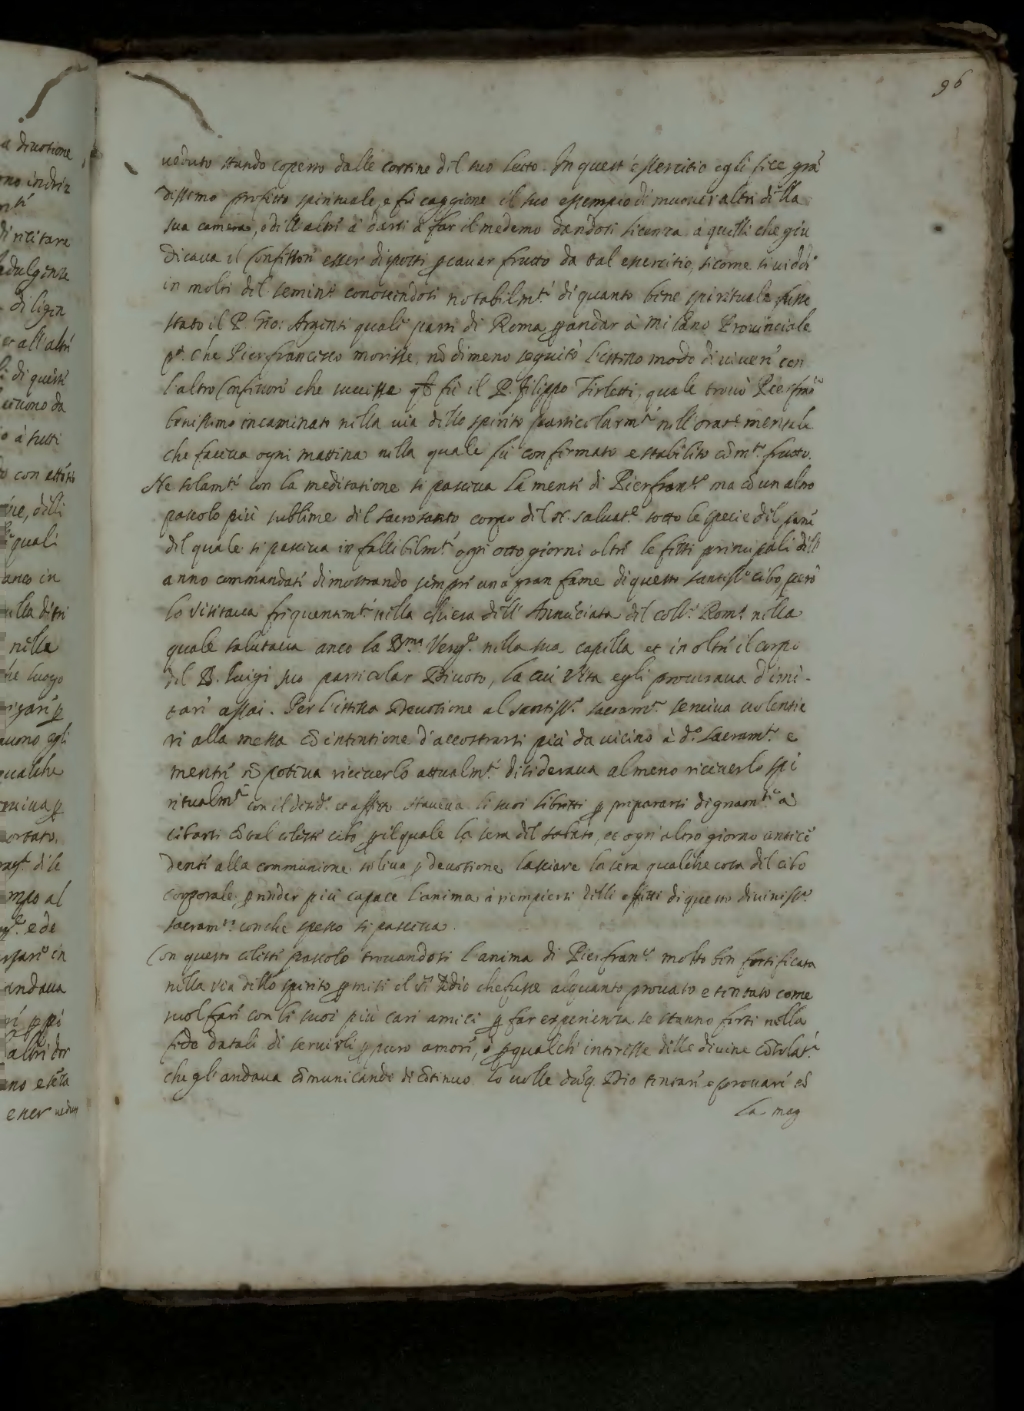 96
ueduto stando coperto dalle cortine del suo letto. In quest'essercitio egli fece grã
dissimo profitto spirituale, e fù caggione il suo essempio di muouer altri della
sua camera, ò dell'altri à darsi à far il medemo dandosi licenza a quelli che giu
dicaua il Confessore esser disposti ꝑ cauar frutto da tal essercitio, sicome si uidde
in molti del semin.º conoscendosi notabilm.te di quanto bene spirituale fusse
stato il P. Gio: Argenti quale parti di Roma ꝑ andar à Milano Prouinciale
p.ª che Pierfrancesco morisse, nõdimeno seguitò l'istesso modo di uiuere con
l'altro Confessore che successe qle fù il P. Filippo quale trouò Pierfrã.co
benissimo incaminato nella uia dello spirito particolarm.te nell'orat.e mentale
che faceua ogni mattina nella quale fù confirmato e stabilito cõ m.to frutto.
Ne solam.te con la meditatione si pasceua la mente di Pierfran.co ma cõ un altro
pascolo più sublime del sacrosanto corpo del N. saluat.e sotto le specie del pane
del quale si pasceua infallibilm.te ogni otto giorni oltre le feste principali dell'
anno commandate dimostrando sempre una gran fame di questo santiss.º cibo, però
lo visitaua frequentem.te nella chiesa dell'Annũciata del coll.º Rom.º nella
quale salutaua anco la B.ma Verg.e nella sua capella et in oltre il corpo
del B. Luigi suo particolar Diuoto, la cui Vita egli procuraua d'imi-
tare assai. Per l'istessa Deuotione al santiss.º sacram.to seruiua uolentie
ri alla messa cõ intentione d'accostarsi più da uicino à d.º sacram.to e
mentre nõ poteua riceuerlo attualm.te desideraua almeno riceuerlo spi
ritualm.te con il et affetto. Haueua li suoi libretti ꝑ prepararsi degnam.te à
cibarsi cõ tal celeste cibo ꝑ il quale la sera del sabato, et ogn'altro giorno antece
dente alla communione soleua ꝑ deuotione lasciare la sera qualche cosa del cibo
corporale, ꝑ render più capace l'anima à riempiersi delli effetti di questo diuiniss.º
sacram.to con che spesso si pasceua.
Con questo celeste pascolo trouandosi l'anima di Pierfran.co molto ben fortificata
nella via dello spirito ꝑmise il S.r Iddio che fusse alquanto prouato e tentato come
suol fare con li suoi più cari amici ꝑ far esperienza se stanno forti nella
fede datali di seruirli ꝑ puro amore, ò ꝑ qualche interesse delle diuine cõsolat.i
che gl'andaua cõmunicando di cõtinuo. Lo uolle dũq. Dio tentare e prouare cõ
la mag